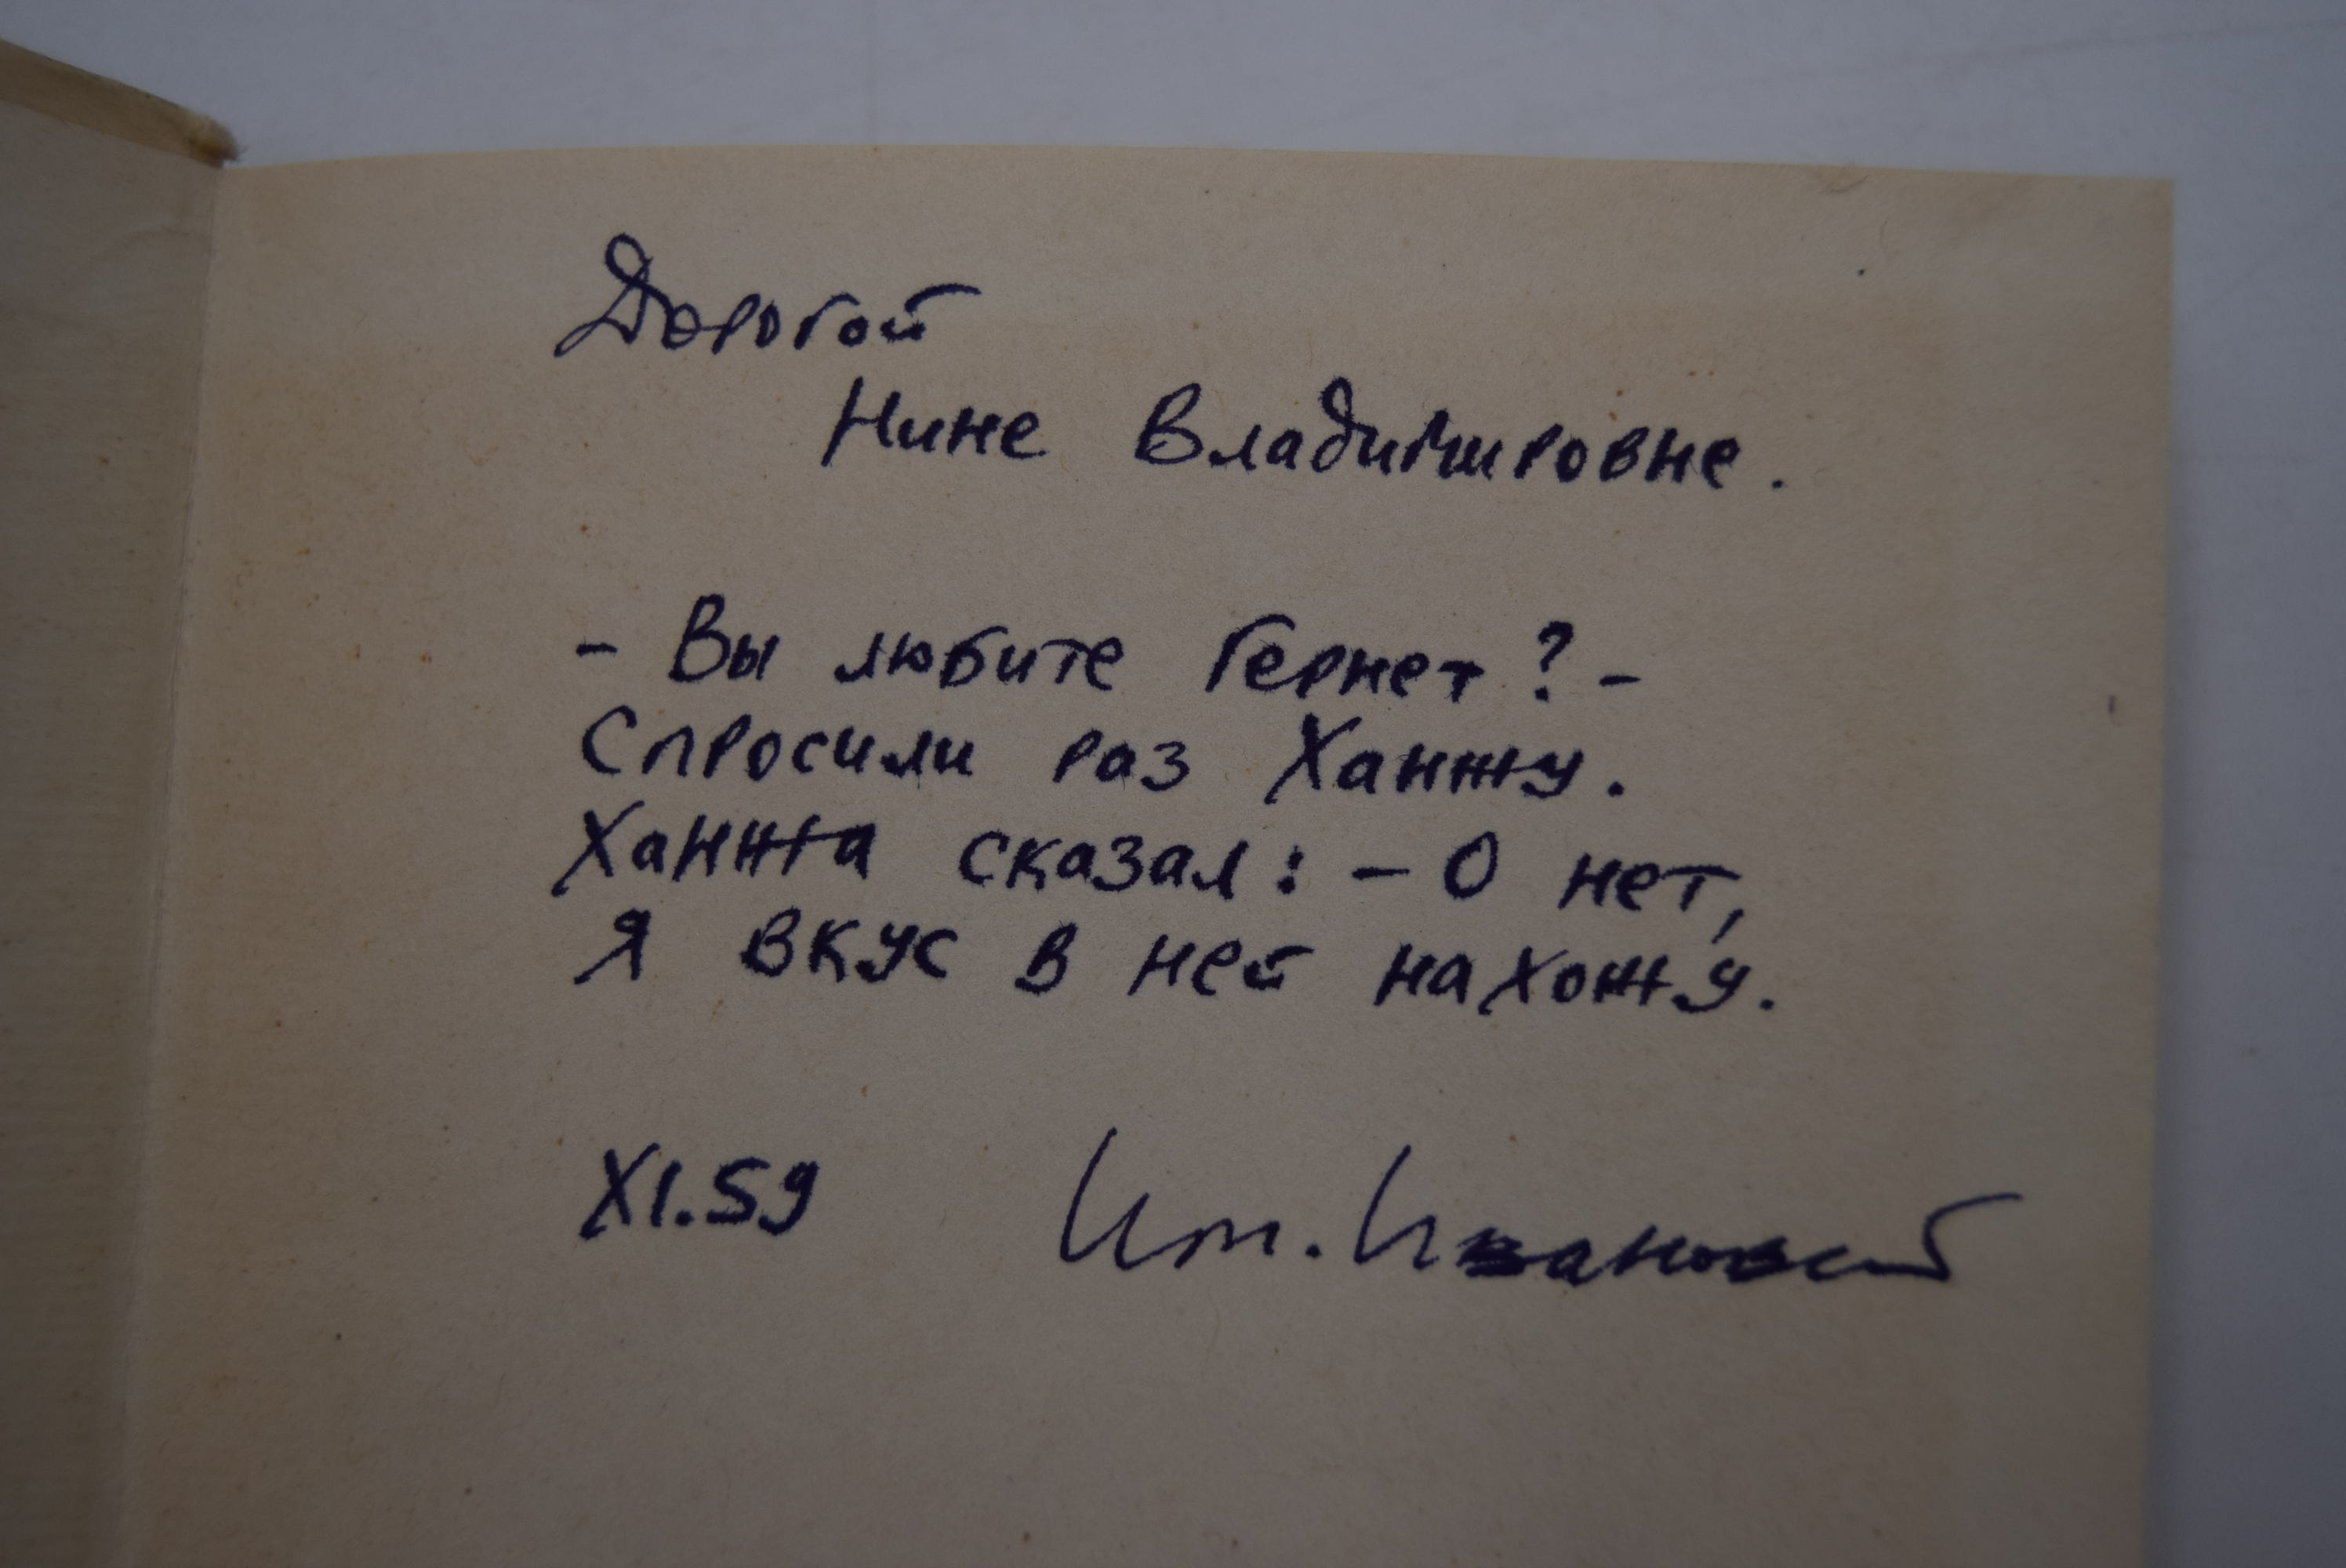 Дорогой
Нине Владимировне.
- Вы любите Гернет? -
Спросили раз Ханжу.
Ханжа сказал: - О нет,
Я вкус в ней нахожу.
XI.59 Иг. Ивановский